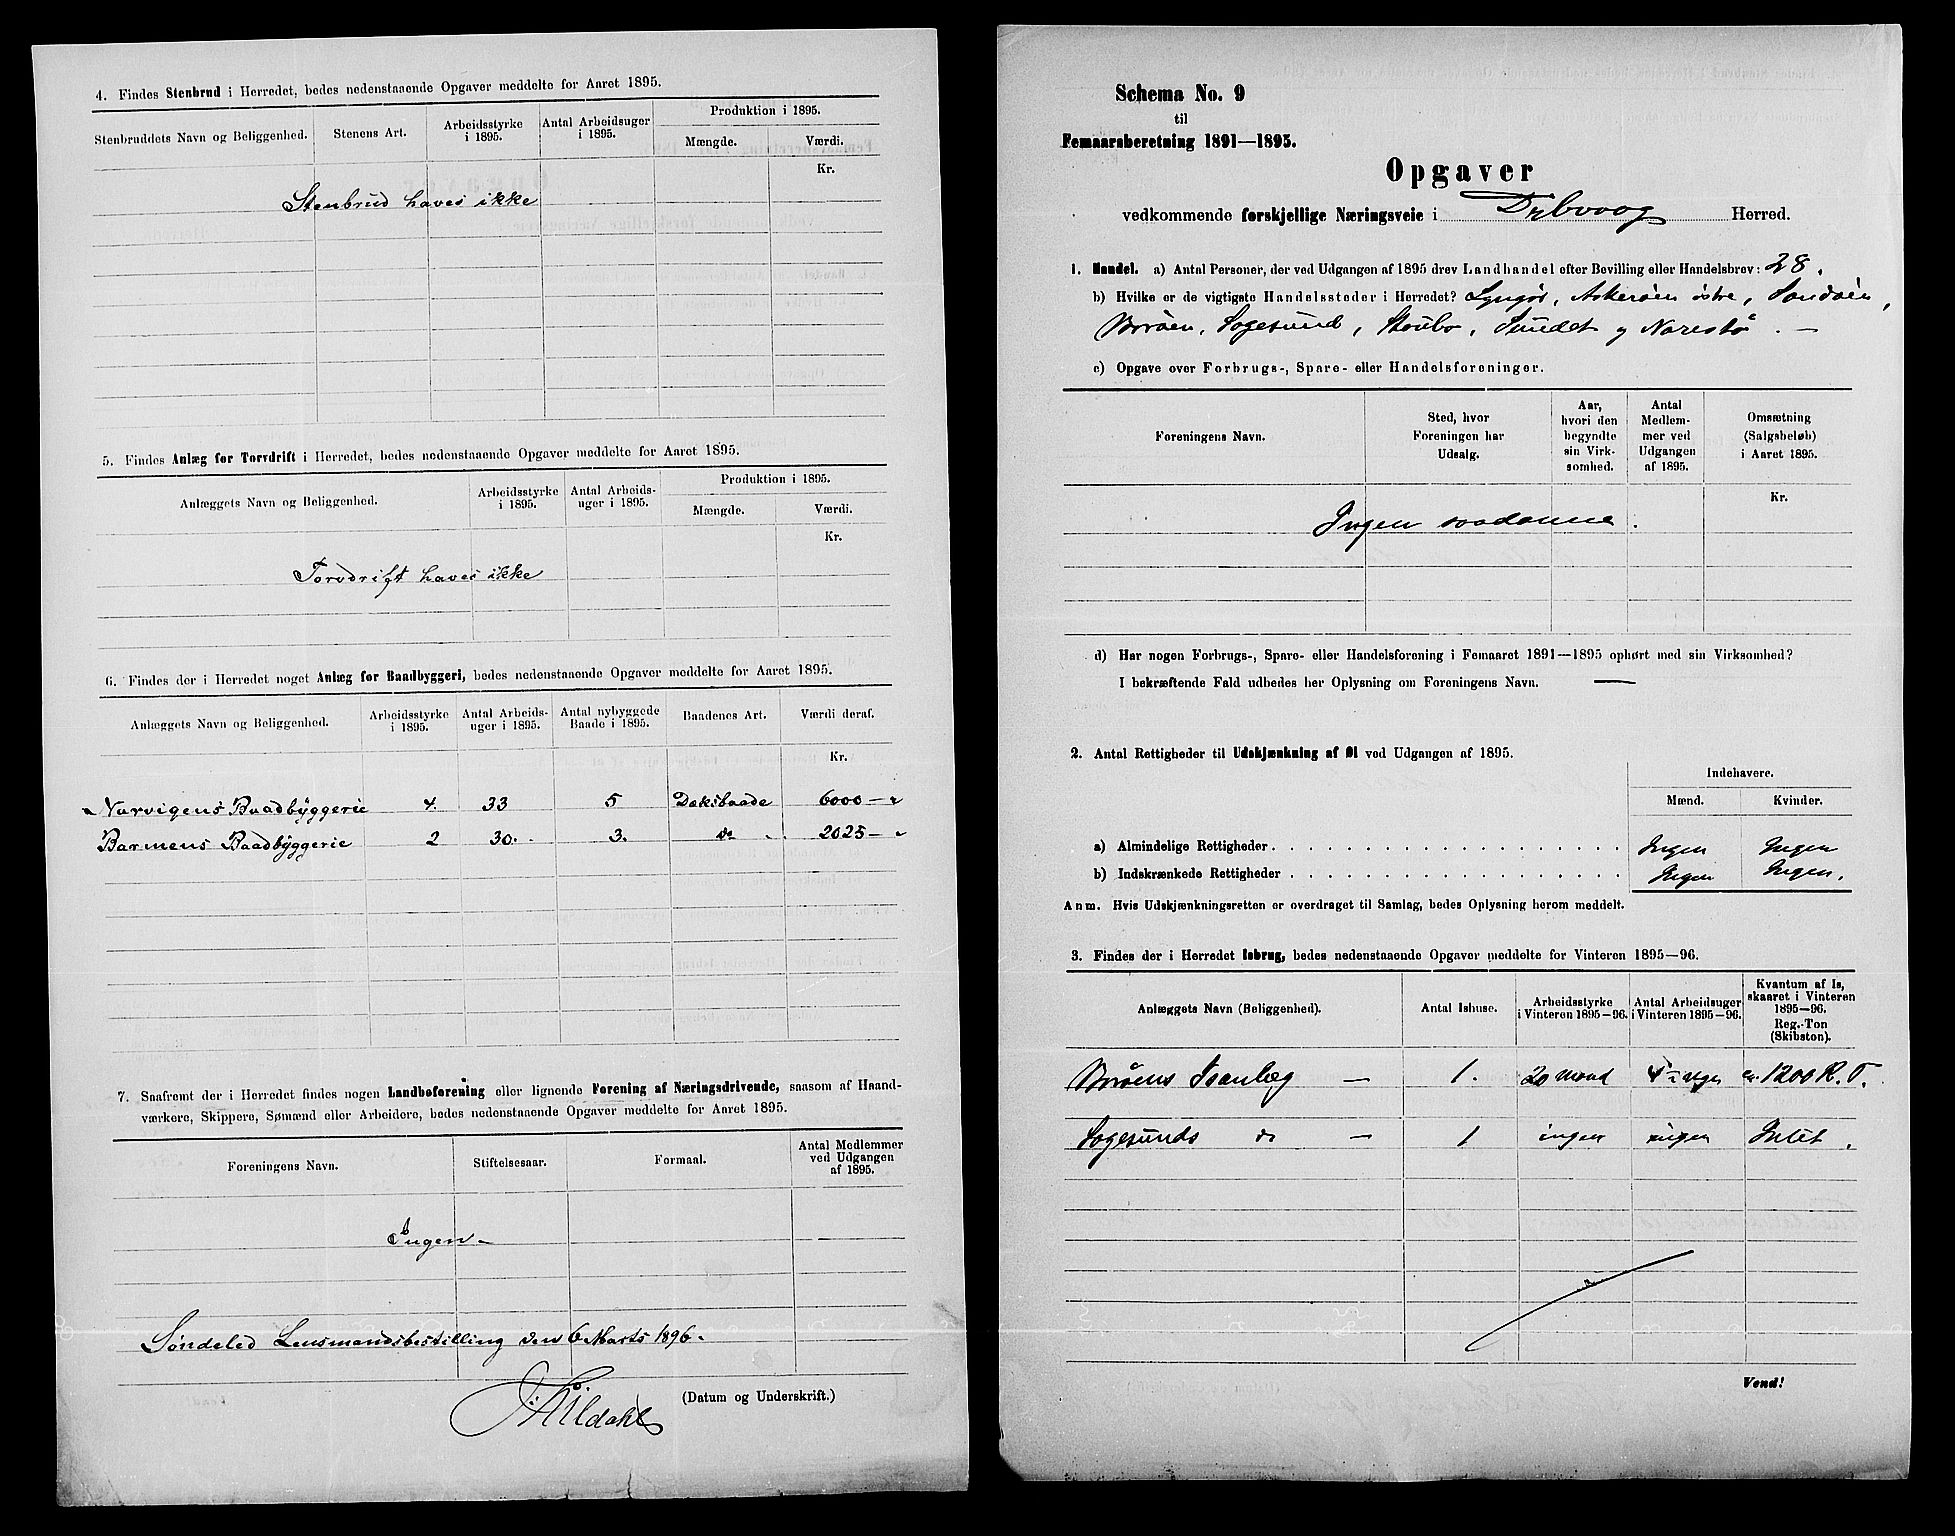 4. Findes Stenbrud i Herredet, bedes nedenstaaende Opgaver meddelte for Aaret 1895.
Stenbruddets Navn og Beliggenhed. Stenens Art. Arbeidsstyrke i 1895. Antal Arbeidsuger i 1895. Produktion i 1895.
Mængde. Værdi.
Kr.
Stenbrud haves ikke
5. Findes Anlæg for Torvdrift i Herredet, bedes nedenstaaende Opgaver meddelte for Aaret 1895.
Anlæggets Navn og Beliggenhed. Arbeidsstyrke i 1895. Antal Arbeids-uger i 1895. Produktion i 1895.
Mængde. Værdi.
Kr.
Torvdrift haves ikke
6. Findes der i Herredet noget Anlæg for Baadbyggeri, bedes nedenstaaende Opgaver meddelte for Aaret 1895.
Anlæggets Navn og Beliggenhed. Arbeidsstyrke i 1895. Antal Arbeids-uger i 1895. Antal nybyggede Baade i 1895. Baadenes Art. Værdi deraf.
Kr.
Narvigens Baadbyggerie 4. 33 5 Dæksbaade 6000 —
Barmens Baadbyggerie 2 30. 3. do 2025 —
7. Saafremt der i Herredet findes nogen Landboforening eller lignende Forening af Næringsdrivende, saasom af Haand-
værkere, Skippere, Sømænd eller Arbeidere, bedes nedenstaaende Opgaver meddelte for Aaret 1895.
Foreningens Navn. Stiftelsesaar. Formaal. Antal Medlemmer ved Udgangen af 1895.
Ingen —
Søndeled Lensmandsbestilling den 6 Marts 1896.
(Datum og Underskrift.)
Schema No. 9
til
Femaarsberetning 1891—1895.
Opgaver
vedkommende forskjellige Næringsveie i Dybvaag Herred.
1. Handel. a) Antal Personer, der ved Udgangen af 1895 drev Landhandel efter Bevilling eller Handelsbrev: 28.
b) Hvilke er de vigtigste Handelssteder i Herredet? Lyngør, Askerøen østre, Sandøen,
Borøen, Sagesund, Staubo, Sundet og Narestø. —
c) Opgave over Forbrugs-, Spare- eller Handelsforeninger.
Foreningens Navn. Sted, hvor Foreningen har Udsalg. Aar, hvori den begyndte sin Virk-somhed. Antal Medlem-mer ved Udgangen af 1895. Omsætning (Salgsbeløb) i Aaret 1895.
Kr.
Ingen saadanne.
d) Har nogen Forbrugs-, Spare- eller Handelsforening i Femaaret 1891—1895 ophørt med sin Virksomhed?
I bekræftende Fald udbedes her Oplysning om Foreningens Navn. —
2. Antal Rettigheder til Udskjænkning af Øl ved Udgangen af 1895.
Indehavere.
Mænd. Kvinder.
a) Almindelige Rettigheder. Ingen Ingen
b) Indskrænkede Rettigheder Ingen Ingen.
Anm. Hvis Udskjænkningsretten er overdraget til Samlag, bedes Oplysning herom meddelt.
3. Findes der i Herredet Isbrug, bedes nedenstaaende Opgaver meddelte for Vinteren 1895—96.
Anlæggets Navn (Beliggenhed). Antal Ishuse. Arbeidsstyrke i Vinteren 1895—96. Antal Arbeidsuger i Vinteren 1895—96. Kvantum af Is, skaaret i Vinteren 1895—96. Reg.-Ton (Skibston).
Borøens Isanlæg — 1. 20 mand ca. 1200 R. T.
Sagesunds do — 1 ingen ingen Intet.
Vend!